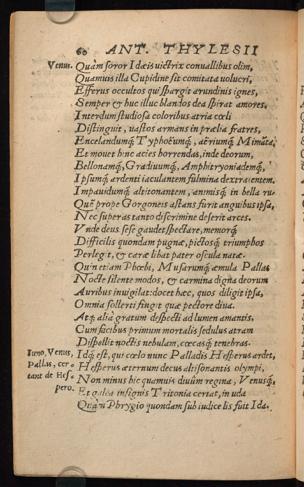 60 ANT. THYLESII
Venus. Quàm soror Idæis victrix convallibus olim,
Quamuis illa Cupidine sit comitata volucri,
Efferus occultos qui spargit arundinis ignes,
Semper & huc illuc blandos dea spirat amores.
Interdum studiosa coloribus atria cœli
Distinguit, vastos armans in prælia fratres,
Encelandumq́; Typhoëumq́;, aëriumq́; Mimāta,
Et mouet hinc acies horrendas, inde deorum,
Bellonamq́;, Gradiuumq́;, Amphitryoniademq́;,
Ipsumq́; ardenti iaculantem fulmina dextra
Impauidumq́; altitonantem, animisq́; in bella
Quē prope Gorgoneis astans furit anguibus ipsa,
Nec superas tanto discrimine deserit arces.
Vnde deus sese gaudet spectare, memorq́;
Difficilis quondam pugnæ, pictosq́; triumphos
Perlegit, & caræ libat pater oscula natæ.
Quin etiam Phœbi, Musarumq́; æmula Pallas
Nocte silente modos, & carmina digna deorum
Auribus inuigilat: docet hæc, quos diligit ipsa,
Omnia sollerti fingit quæ pectore diua.
Atq́; aliā gratum despecti ad lumen amantis,
Cum facibus primum mortalis sedulas atram
Dispellit noctis nebulam, cæcasq́; tenebras.
Iuno, Venus, Idq́; est, qui cœlo nunc Palladis Hesperus ardet,
Pallas, cer- Hesperus æternum decus altisonantis olympi,
tant de Hes- Non minus hic quamuis diuûm reginæ, Venusq́;
pero. Et galea insignis Tritonia certat, in uda
Quàm Phrygio quondam sub iudice lis fuit Ida.